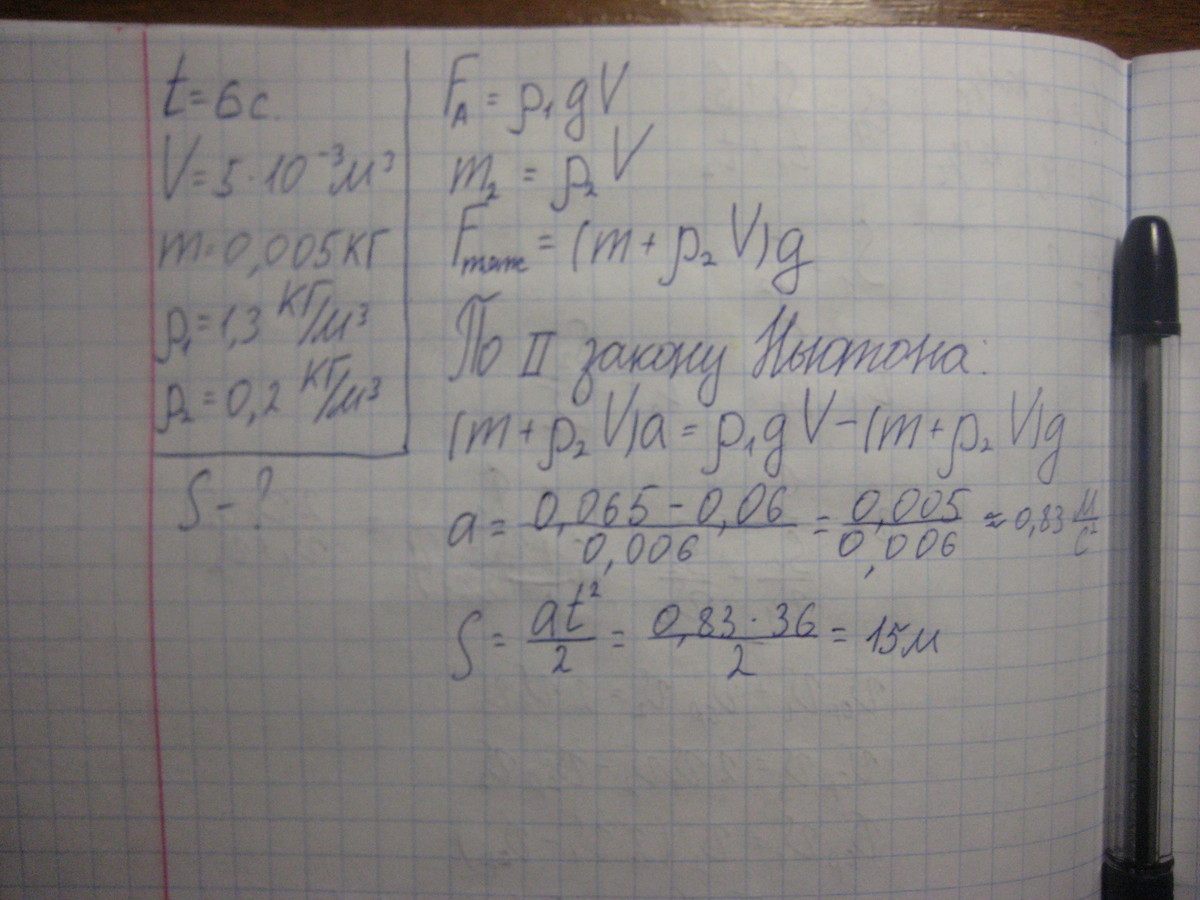 t = 6c.
V = 5·10⁻³ м³
m = 0,005 кг
ρ₁ = 1,3 кг/м³
ρ₂ = 0,2 кг/м³
S - ?
F_A = ρ₁gV
m₂ = ρ₂V
F_тяж = (m + ρ₂V)g
По II закону Ньютона:
(m + ρ₂V)a = ρ₁gV - (m + ρ₂V)g
a = (0,065 - 0,06)/0,006 = 0,005/0,006 ≈ 0,83 м/с²
S = at²/2 = 0,83·36/2 = 15м